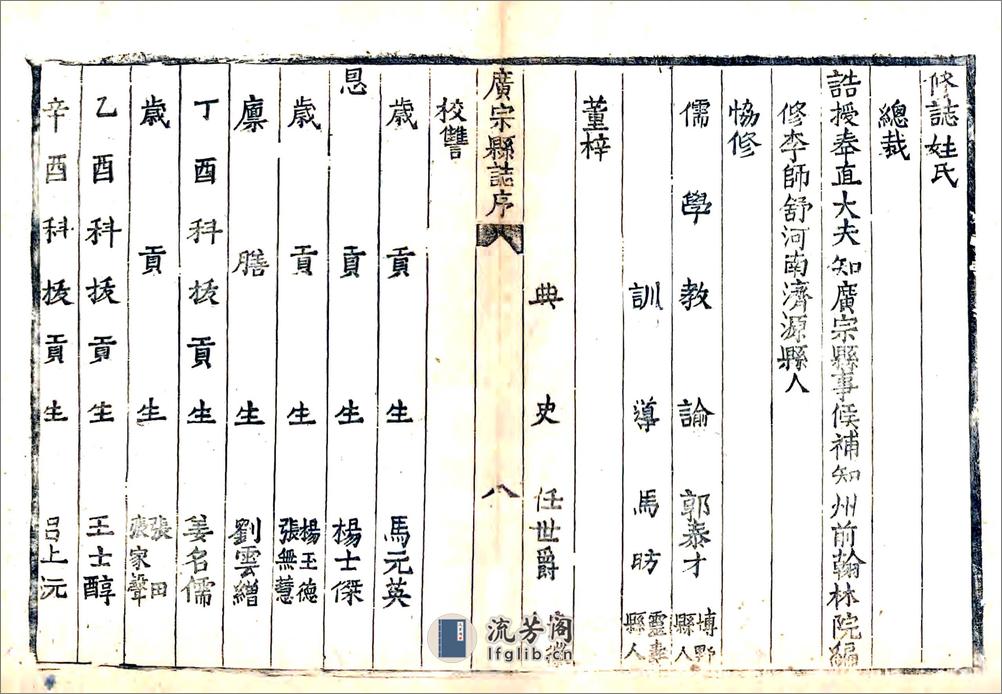 修誌姓氏
總裁
誥授奉直大夫知廣宗縣事候補知州前翰林院編
修李師舒河南濟源縣人
恊修
儒學教諭 郭泰才 博野縣人
訓導 馬昉 靈壽縣人
董梓
典史 任世爵
廣宗縣誌序 八
校讐
歲貢生 馬元英
恩貢生 楊士傑
歲貢生 楊玉德 張無慧
廩膳生 劉雲繒
丁酉科拔貢生 姜名儒
歲貢生 張田 張家聲
乙酉科拔貢生 王士醇
辛酉科拔貢生 呂上沅
流芳阁
lfglib.cn